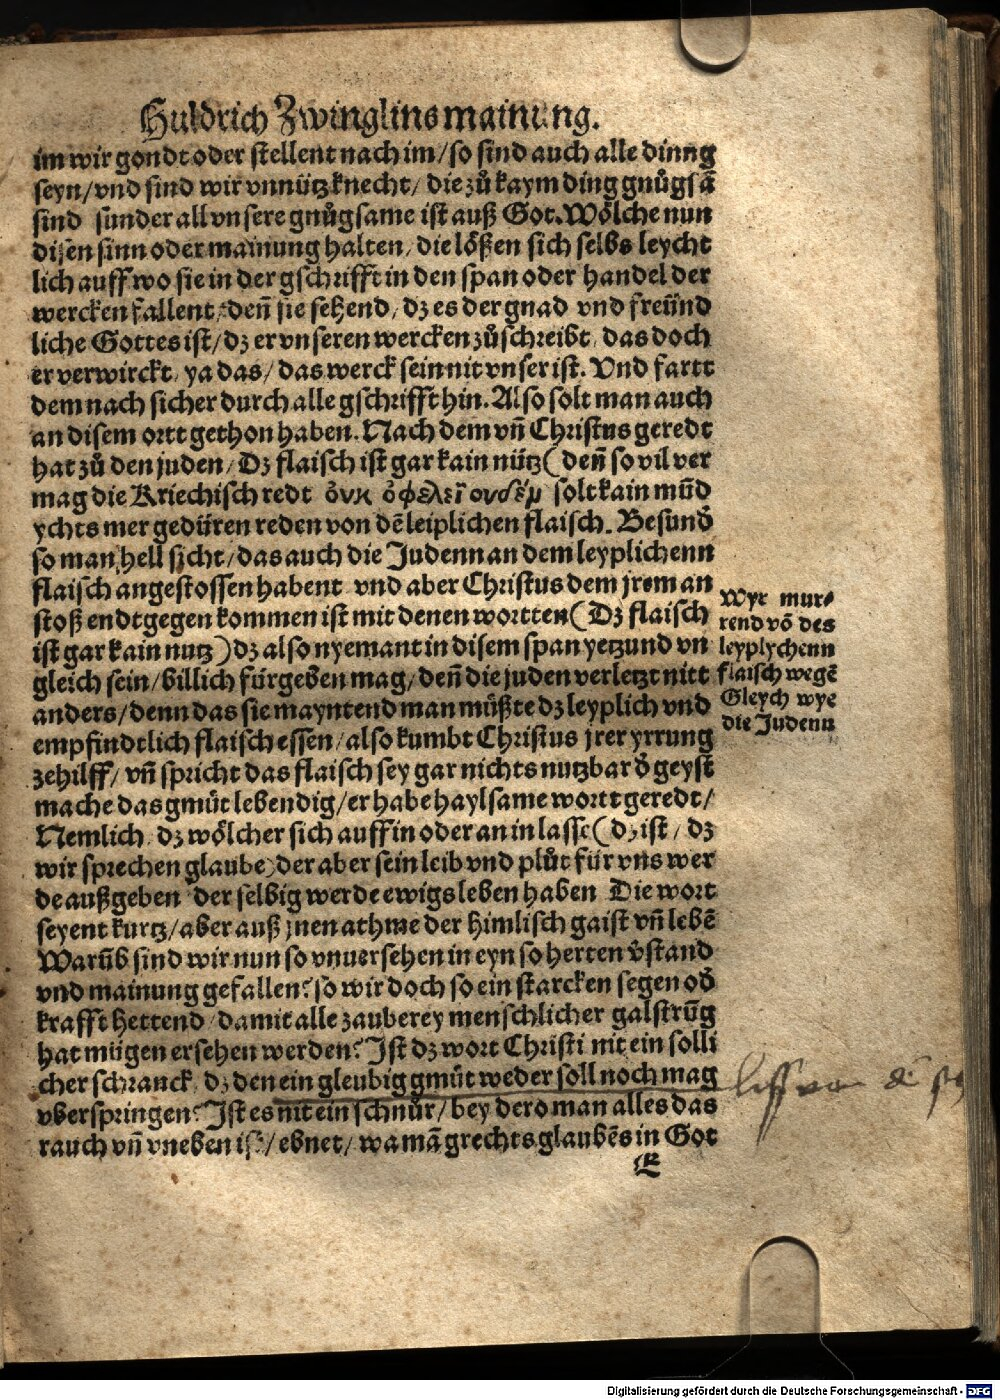 Huldrich Zwinglins mainung.
im wir gondt oder stellent nach im/ so sind auch alle dinng
seyn/ vnd sind wir vnnütz knecht/ die zů kaym ding gnůgsã
sind sunder all vnsere gnůgsame ist auß Got. Wölche nun
disen sinn oder mainung halten/ die lößen sich selbs leycht
lich auff wo sie in der gschrifft in den span oder handel der
wercken fallent/ deñ sie sehend/ dz es der gnad vnd freünd
liche Gottes ist/ dz er vnseren wercken zůschreibt/ das doch
er verwirckt/ ya das/ das werck sein nit vnser ist. Vnd fartt
demnach sicher durch alle gschrifft hin. Also solt man auch
an disem ortt gethon haben. Nach dem vñ Christus geredt
hat zů den juden/ Dz flaisch ist gar kain nütz (deñ so vil ver
mag die Kriechisch redt ὀυκ ὀφελεῖ ουδέμ solt kain mũd
ychts mer gedüren reden von dẽ leiplichen flaisch. Besund̾
so man hell sicht/ das auch die Judenn an dem leyplichenn
flaisch angestossen habent vnd aber Christus dem jrem an
stoß endtgegen kommen ist mit denen wortten (Dz flaisch
ist gar kain nutz) dz also nyemant in disem span yetzund vn
gleich sein/ billich fürgeben mag/ deñ die juden verletzt nitt
anders/ denn das sie mayntend man müßte dz leyplich vnd
empfindtlich flaisch essen/ also kumbt Christus jrer yrrung
zehilff/ vñ spricht das flaisch sey gar nichts nutzbar d̾ geyst
mache das gmüt lebendig/ er habe haylsame wortt geredt/
Nemlich/ dz wölcher sich auff in oder an in lasse (dz ist/ dz
wir sprechen glaube) der aber sein leib vnd plůt für vns wer
de außgeben der selbig werde ewigs leben haben Die wort
seyent kurtz/ aber auß jnen athme der himlisch gaist vñ lebẽ
Warũb sind wir nun so vnuersehen in eyn so herten v̾stand
vnd mainung gefallen? so wir doch so ein starcken segen od̾
krafft hettend/ damit alle zauberey menschlicher galstrũg
hat mügen ersehen werden? Ist dz wort Christi nit ein solli
cher schranck/ dz den ein gleubig gmüt weder soll noch mag
vberspringen? Ist es nit ein schnůr/ bey dero man alles das
rauch vñ vneben ist/ ebnet/ wa mã grechts glaubẽs in Got
E
Wyr mur-
rend võ des
leyplychenn
flaisch wegẽ
Gleych wye
die Judenn
Digitalisierung gefördert durch die Deutsche Forschungsgemeinschaft - DFG